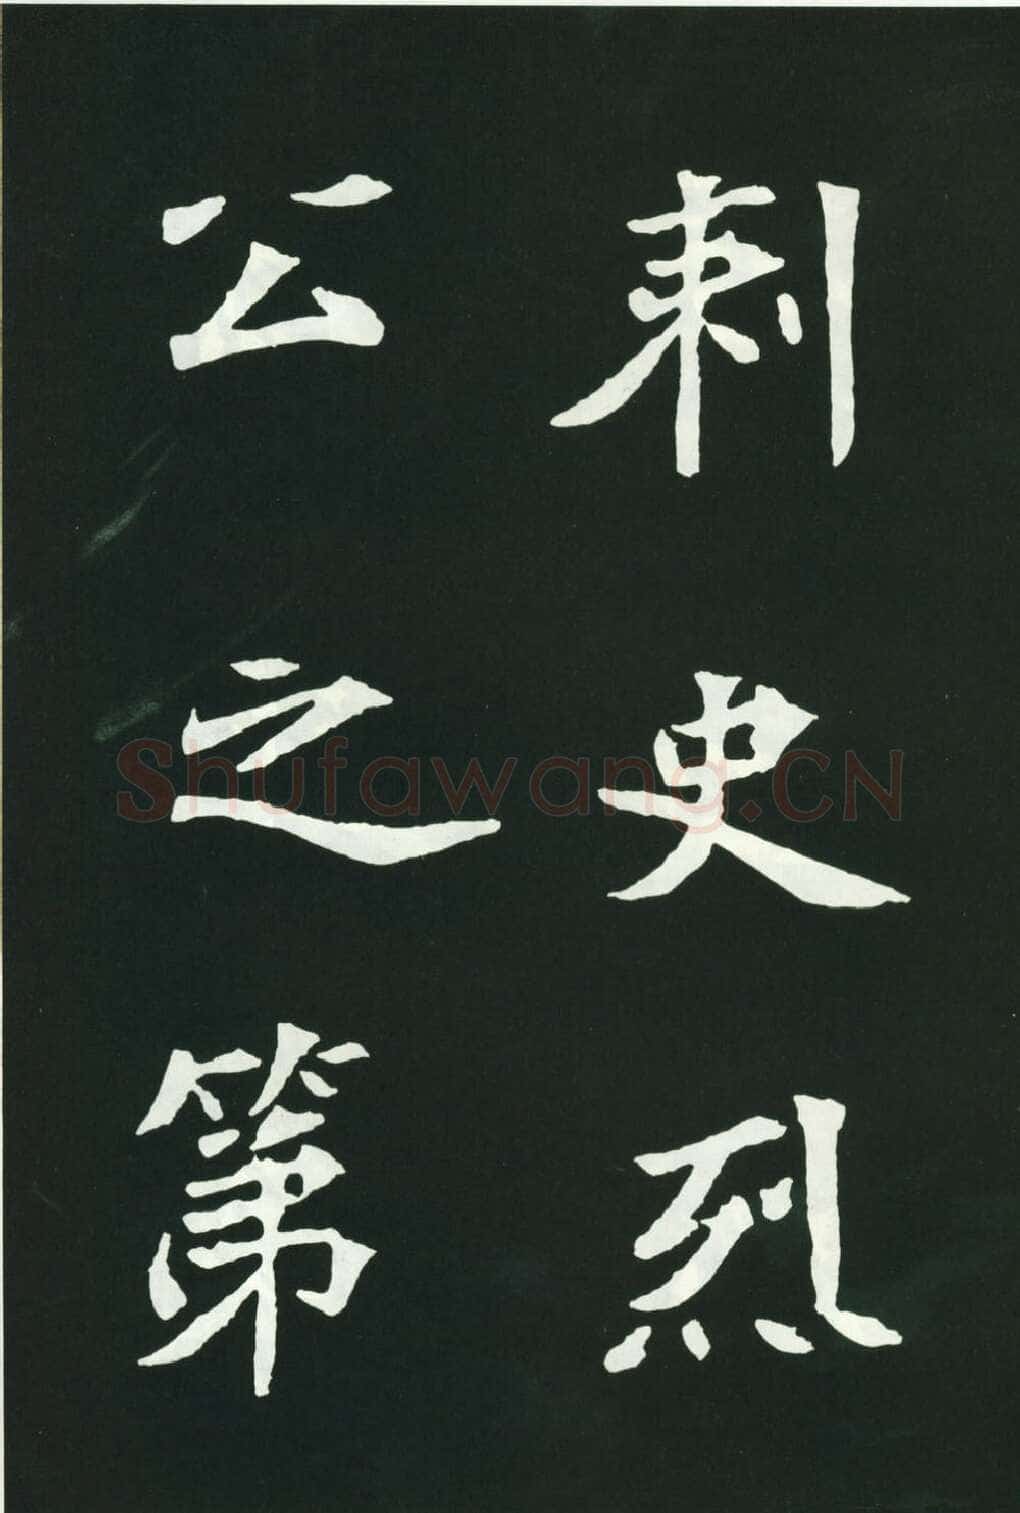 刺史烈
公之第
Shufawang.CN